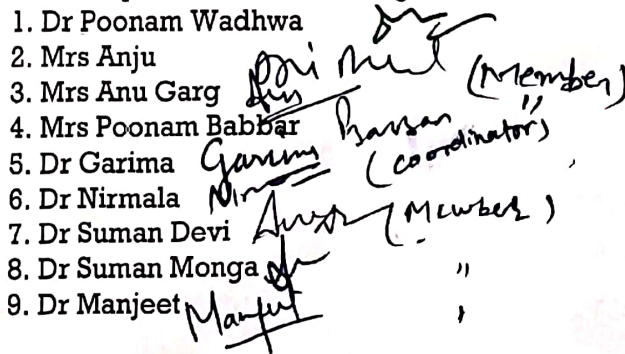 1. Dr Poonam Wadhwa
2. Mrs Anju
3. Mrs Anu Garg (Member)
4. Mrs Poonam Babbar "
5. Dr Garima Garima (Coordinator)
6. Dr Nirmala
7. Dr Suman Devi (Member)
8. Dr Suman Monga "
9. Dr Manjeet Manjeet "